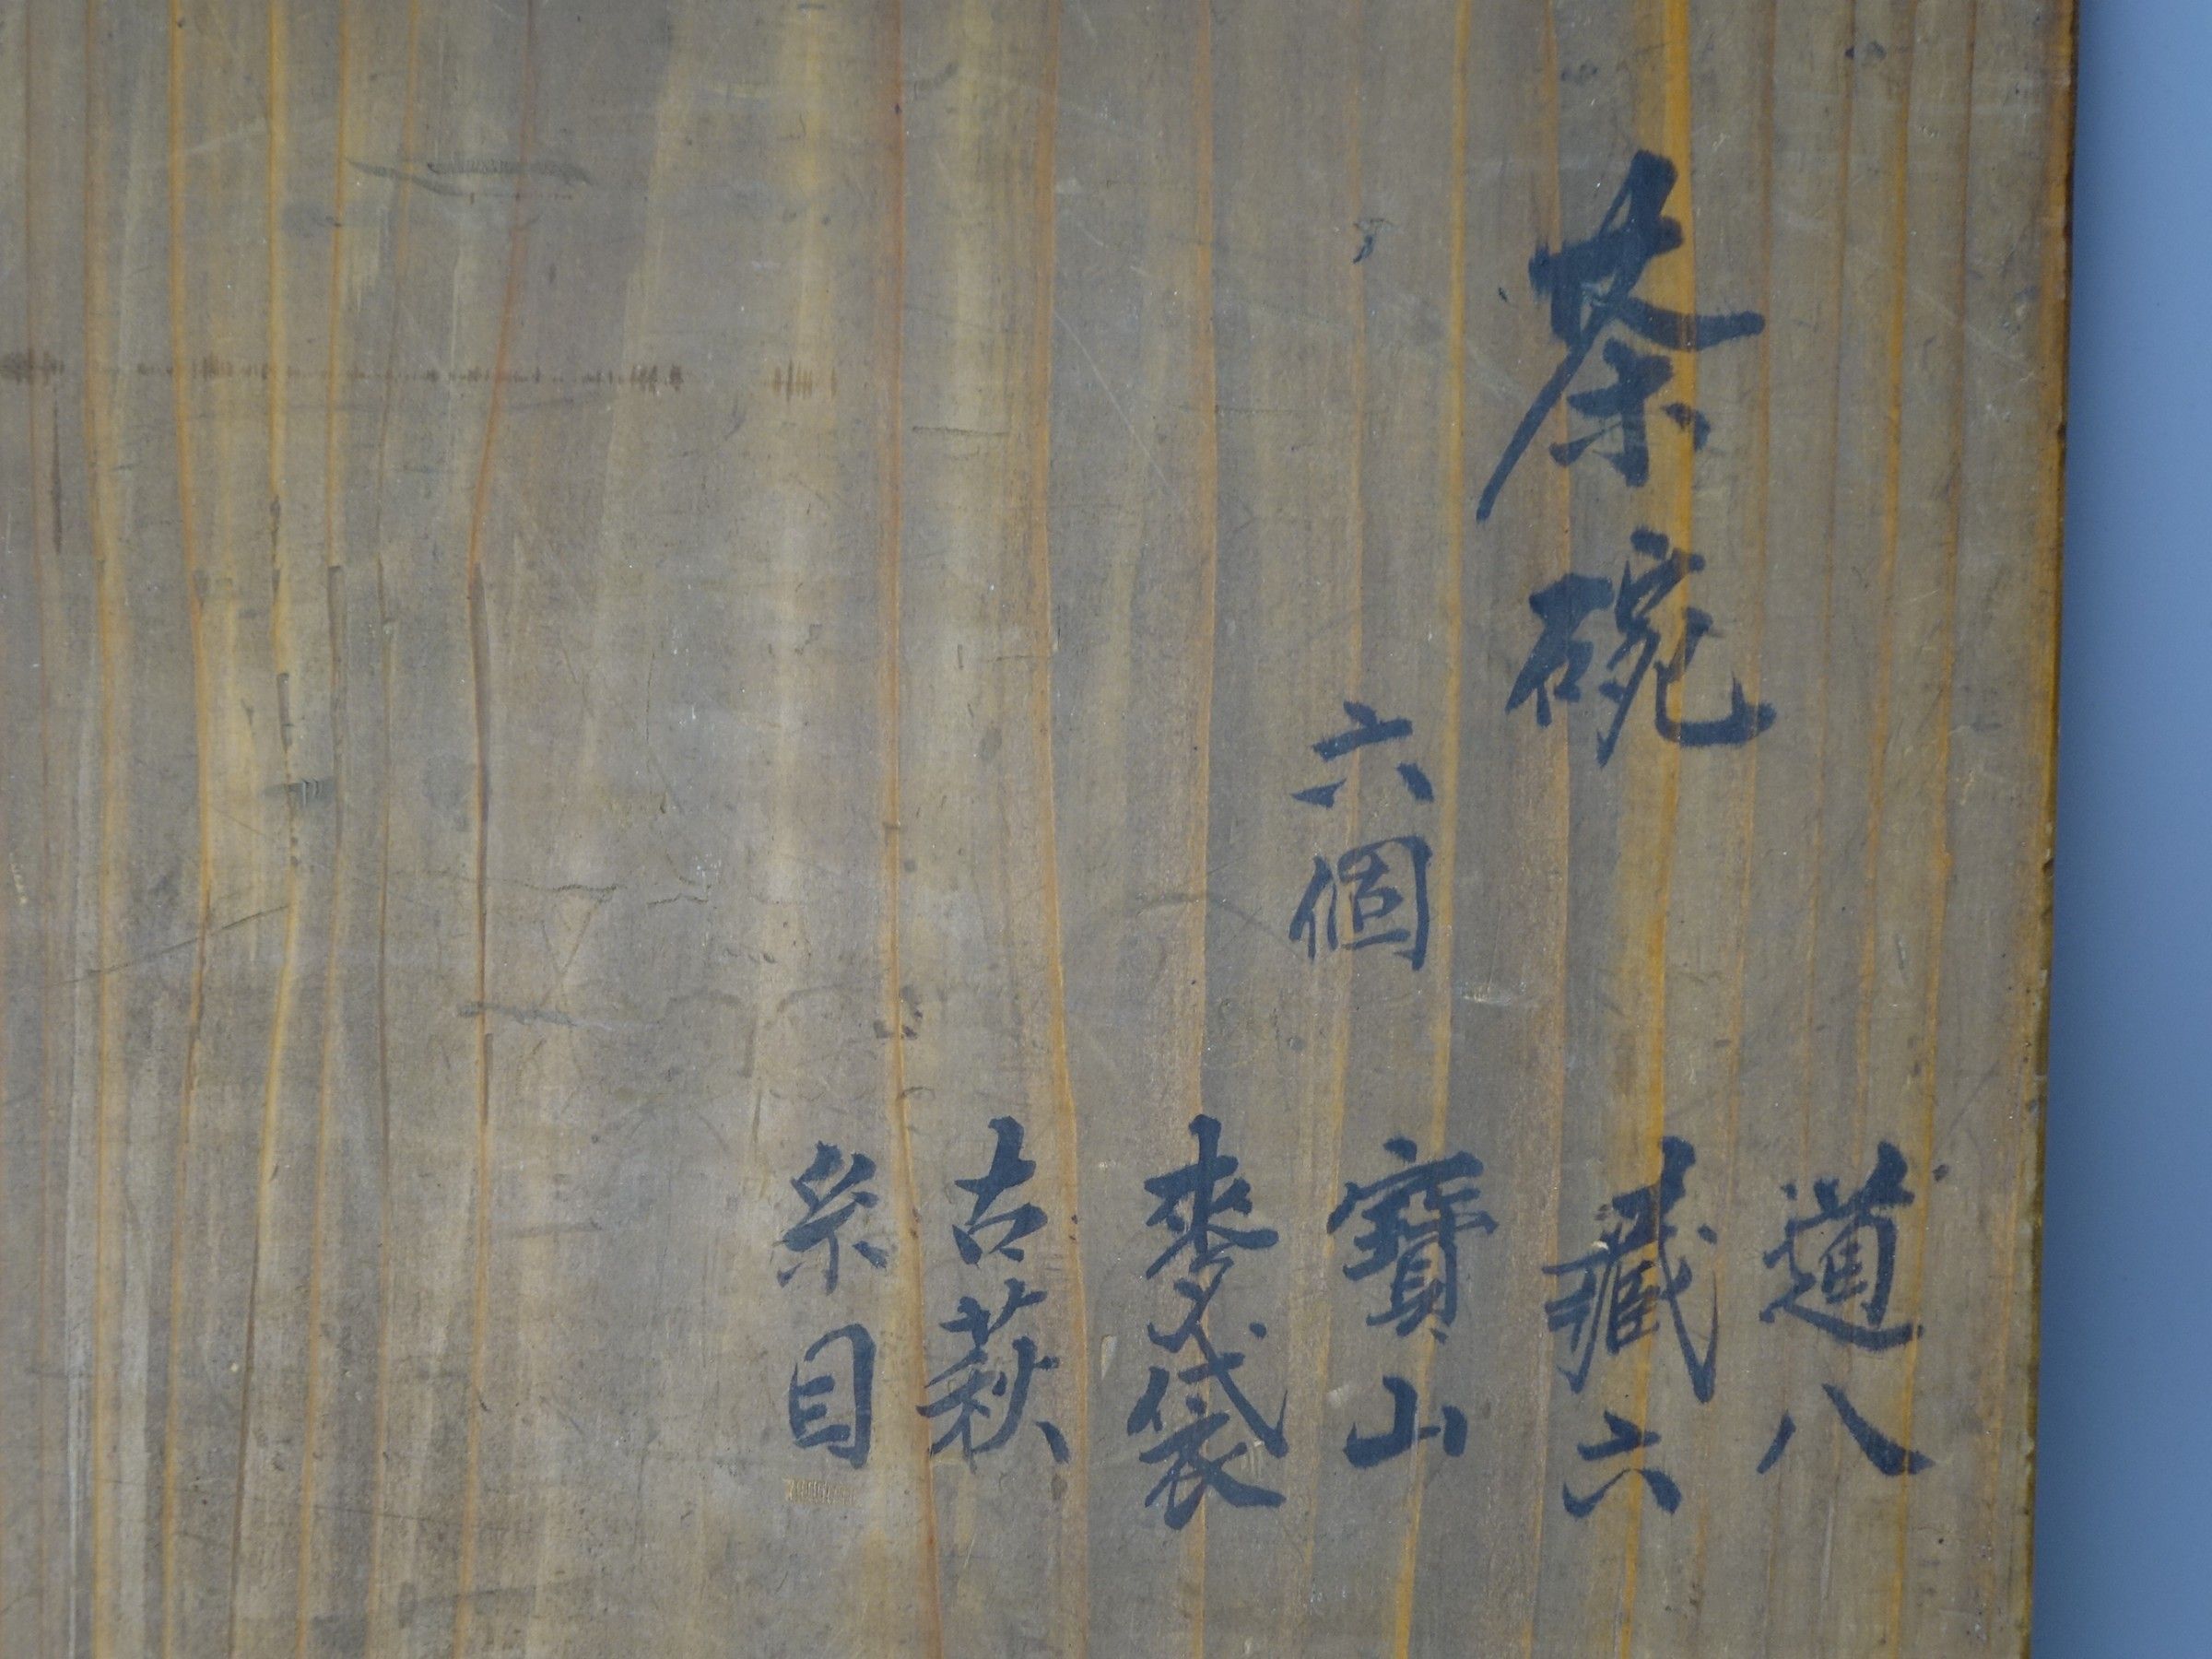 茶碗
六個
道八
藏六
寶山
麥袋
古萩
糸目